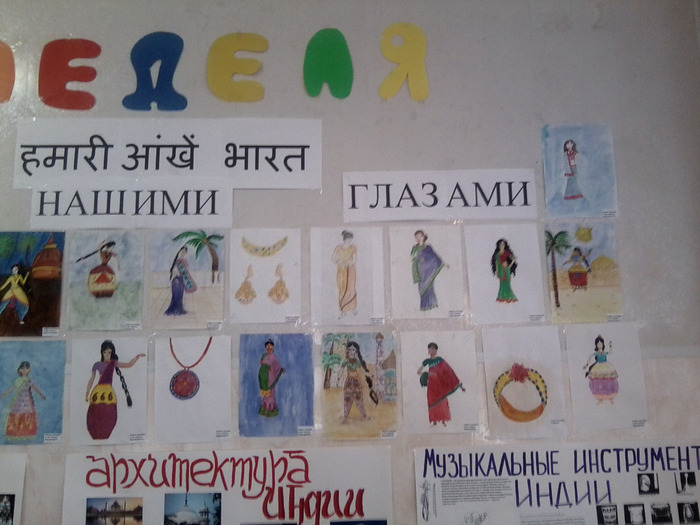 ЕДЕЛЯ
हमारी आंखें भारत
НАШИМИ ГЛАЗАМИ
666
архитектура
Индии
МУЗЫКАЛЬНЫЕ ИНСТРУМЕНТ
ИНДИИ